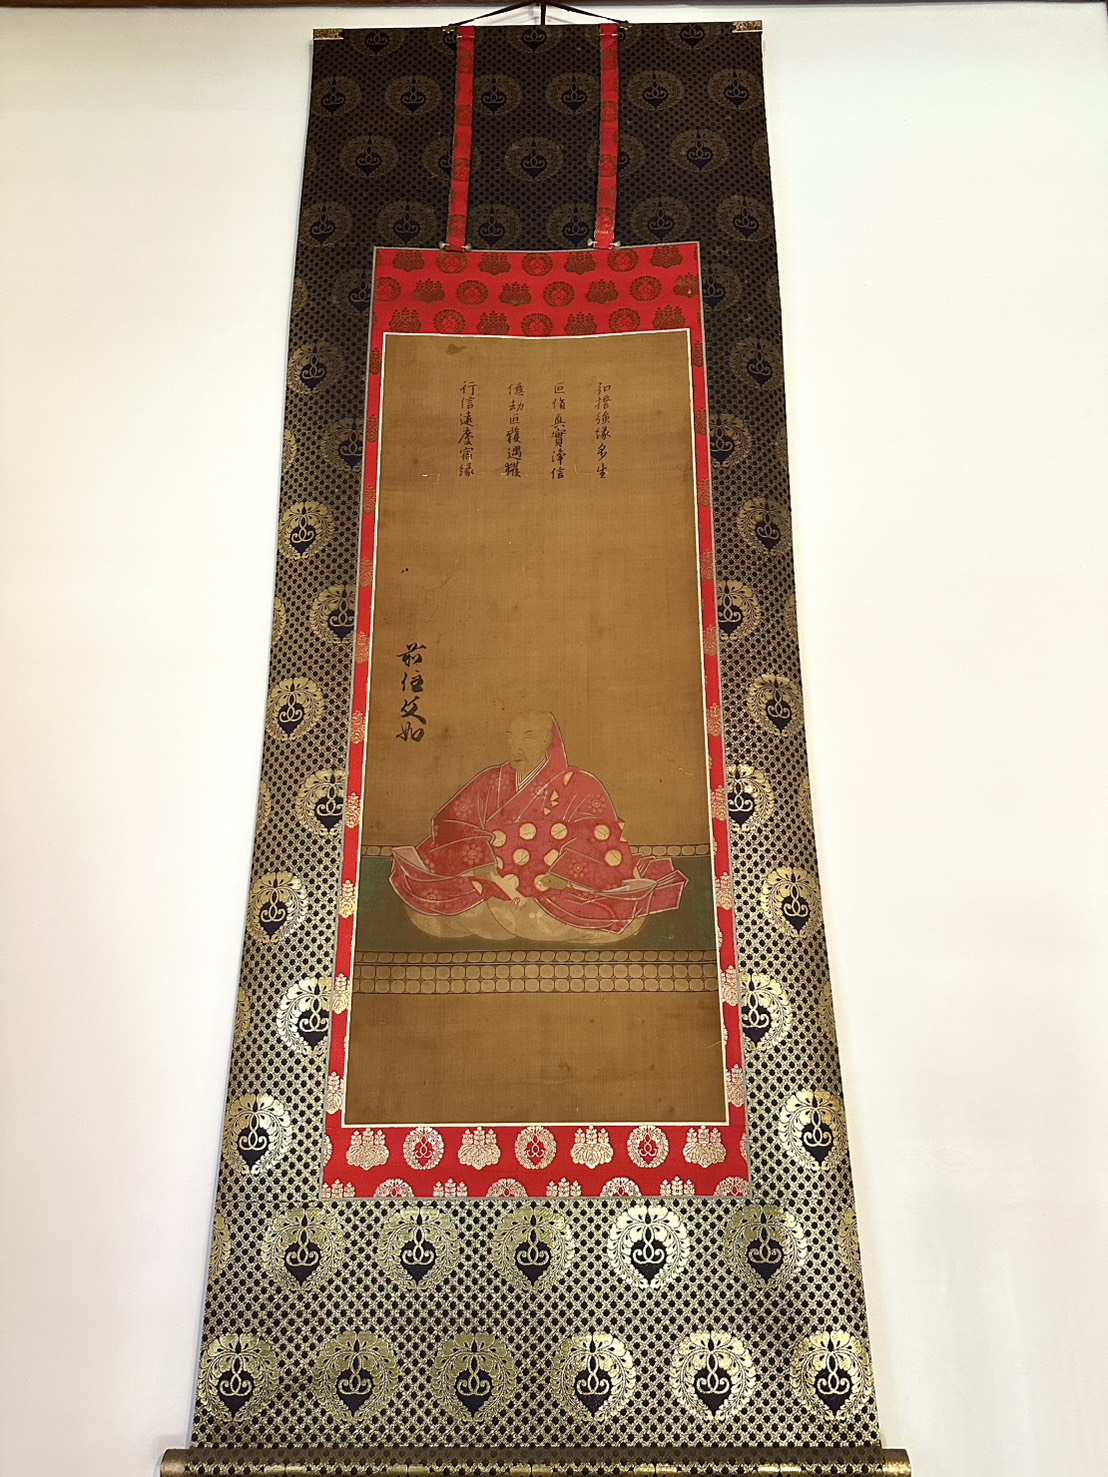 弘誓強縁多生
叵値真實淨信
億劫叵獲遇獲
行信遠慶宿縁
前住文如